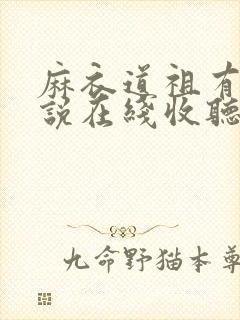 麻衣道祖有
説在綫收聽
九命野猫本尊